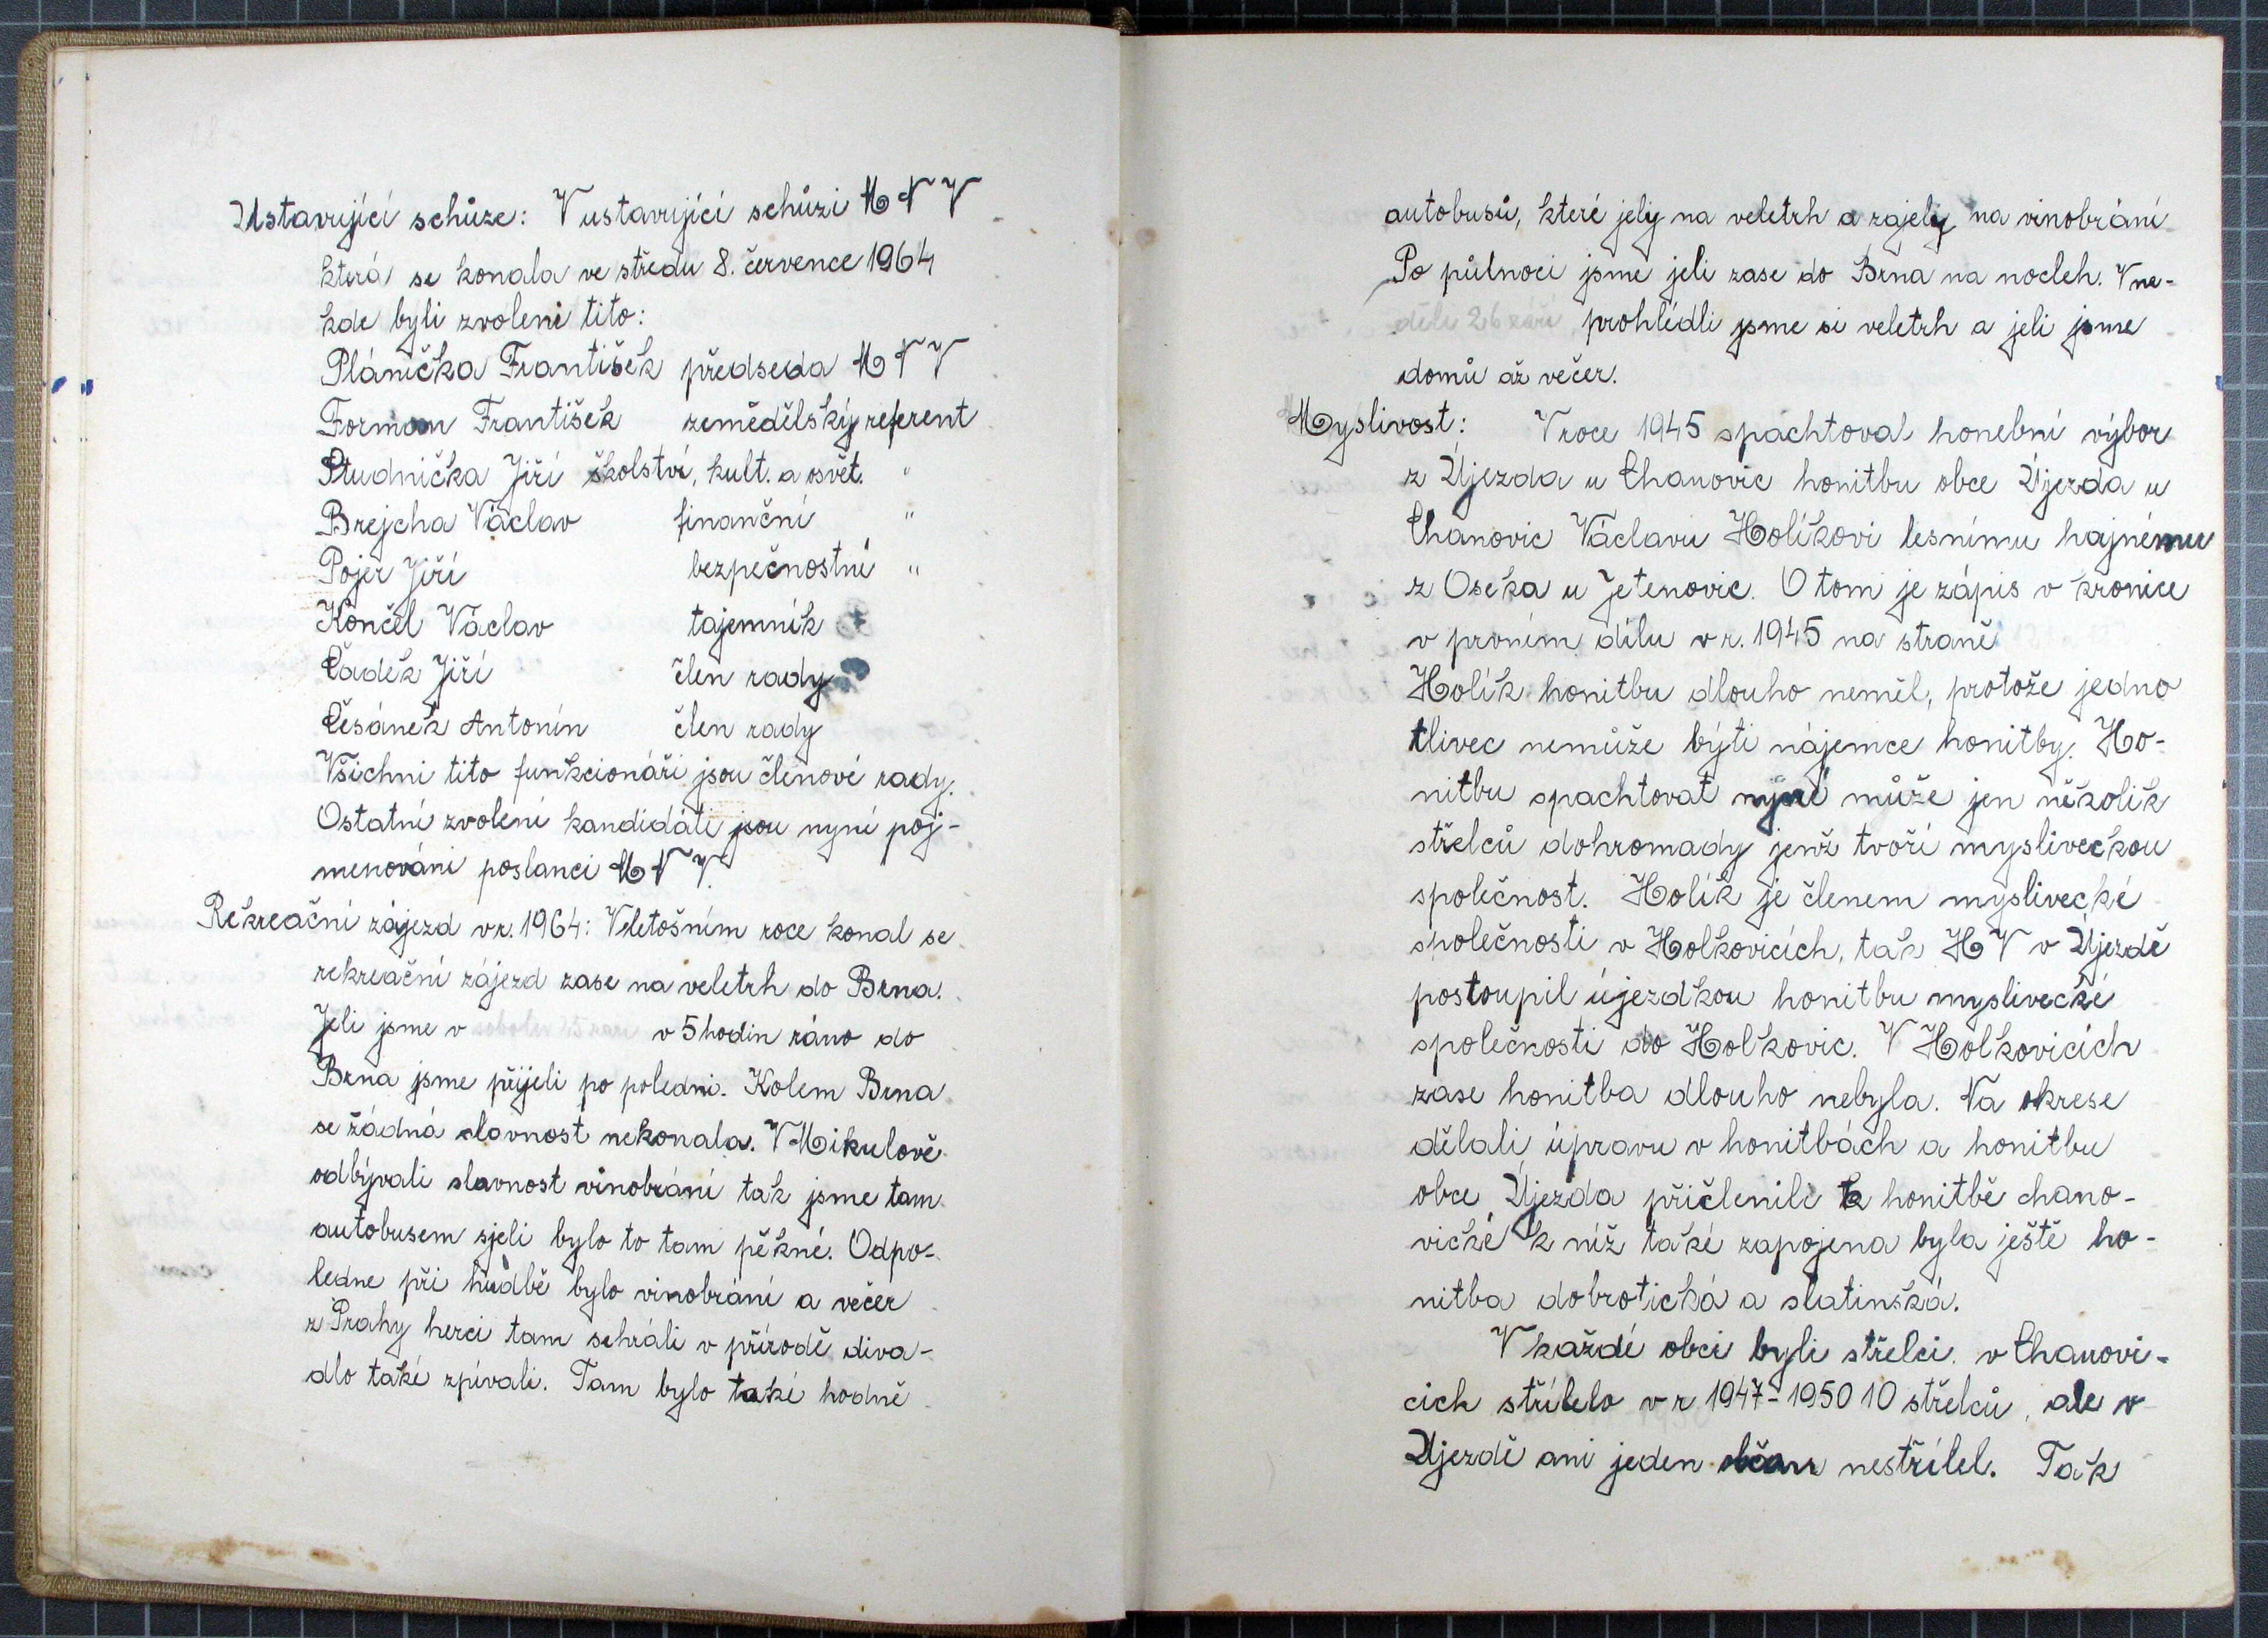 Ustavující schůze: V ustavující schůzi M N V
která se konala ve středu 8. července 1964
kde byli zvoleni tito:
Plánička František předseda M N V
Forman František zemědělský referent
Studnička Jiří školství, kult. a osvět. "
Brejcha Václav finanční "
Pojer Jiří bezpečnostní "
Končel Václav tajemník
Čadek Jiří člen rady
Česánek Antonín člen rady
Všichni tito funkcionáři jsou členové rady.
Ostatní zvolení kandidáti jsou nyní poj-
menováni poslanci M N V.
Rekreační zájezd v r. 1964: V letošním roce konal se
rekreační zájezd zase na veletrh do Brna.
Jeli jsme v v 5 hodin ráno do
Brna jsme přijeli po poledni. Kolem Brna
se žádná slavnost nekonala. V Mikulově
odbývali slavnost vinobraní tak jsme tam
autobusem sjeli bylo to tam pěkné. Odpo-
ledne při hudbě bylo vinobraní a večer
z Prahy herci tam sehráli v přírodě diva-
dlo také zpívali. Tam bylo také hodně
autobusů, které jely na veletrh a zajely na vinobraní
Po půlnoci jsme jeli zase do Brna na nocleh. V ne-
děli 26 září prohlédli jsme si veletrh a jeli jsme
domů až večer.
Myslivost: V roce 1945 spachtoval honební výbor
z Újezda u Chanovic honitbu obce Újezda u
Chanovic Václavu Holíkovi lesnímu hajnému
z Oseka u Jetenovic. O tom je zápis v kronice
v prvním dílu v r. 1945 na straně
Holík honitbu dlouho neměl, protože jedno
tlivec nemůže býti nájemce honitby. Ho-
nitbu spachtovat nyní může jen několik
střelců dohromady jenž tvoří mysliveckou
společnost. Holík je členem myslivecké
společnosti v Holkovicích, tak H V v Újezdě
postoupil újezdkou honitbu myslivecké
společnosti do Holkovic. V Holkovicích
zase honitba dlouho nebyla. Na okrese
dělali úpravu v honitbách a honitbu
obce Újezda přičlenili k honitbě chano-
vické k níž také zapojena byla ještě ho-
nitba dobrotická a slatinská.
V každé obci byli střelci. v Chanovi-
cích střílelo v r 1947-1950 10 střelců, ale v
Újezdě ani jeden občan nestřílel. Tak